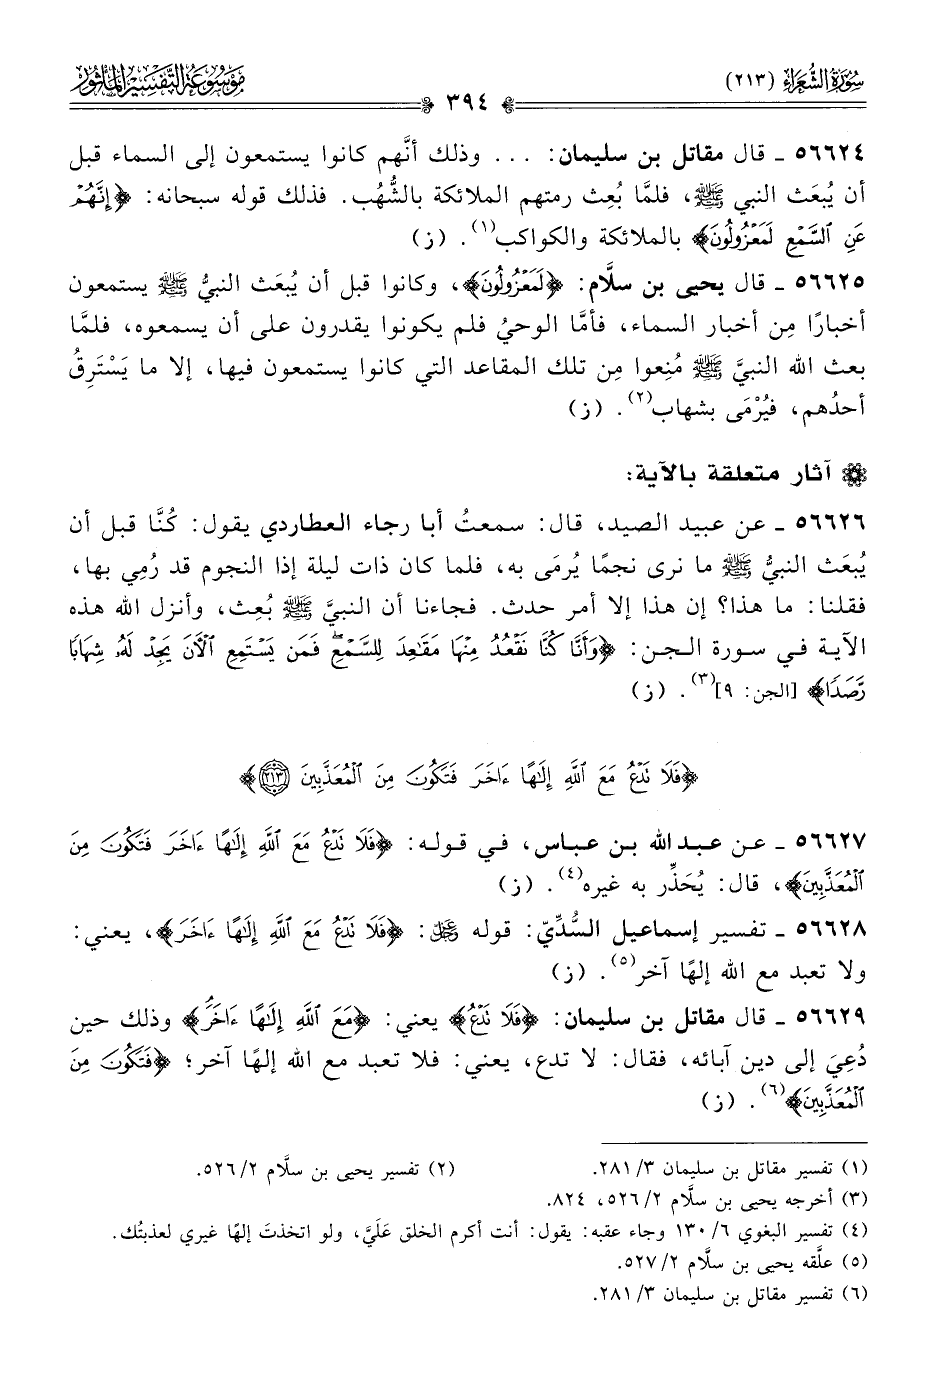 سورة الشعراء (٢١٣)
٣٩٤
موسوعة التفسير المأثور
٥٦٦٢٤ ـ قال مقاتل بن سليمان: ... وذلك أنَّهم كانوا يستمعون إلى السماء قبل
أن يُبعَث النبي ﷺ، فلمَّا بُعِث رمتهم الملائكة بالشُّهُب. فذلك قوله سبحانه: ﴿إِنَّهُمْ
عَنِ ٱلسَّمْعِ لَمَعْزُولُونَ﴾ بالملائكة والكواكب(١). (ز)
٥٦٦٢٥ ـ قال يحيى بن سلَّام: ﴿لَمَعْزُولُونَ﴾، وكانوا قبل أن يُبعَث النبيُّ ﷺ يستمعون
أخبارًا مِن أخبار السماء، فأمَّا الوحيُ فلم يكونوا يقدرون على أن يسمعوه، فلمَّا
بعث الله النبيَّ ﷺ مُنِعوا مِن تلك المقاعد التي كانوا يستمعون فيها، إلا ما يَسْتَرِقُ
أحدُهم، فيُرْمَى بشهاب(٢). (ز)
آثار متعلقة بالآية:
٥٦٦٢٦ ـ عن عبيد الصيد، قال: سمعتُ أبا رجاء العطاردي يقول: كُنَّا قبل أن
يُبعَث النبيُّ ﷺ ما نرى نجمًا يُرمَى به، فلما كان ذات ليلة إذا النجوم قد رُمِي بها،
فقلنا: ما هذا؟ إن هذا إلا أمر حدث. فجاءنا أن النبيَّ ﷺ بُعِث، وأنزل الله هذه
الآية في سورة الجن: ﴿وَأَنَّا كُنَّا نَقْعُدُ مِنْهَا مَقَٰعِدَ لِلسَّمْعِ ۖ فَمَن يَسْتَمِعِ ٱلْآنَ يَجِدْ لَهُۥ شِهَابًا
رَّصَدًا﴾ [الجن: ٩](٣). (ز)
﴿فَلَا تَدْعُ مَعَ ٱللَّهِ إِلَٰهًا ءَاخَرَ فَتَكُونَ مِنَ ٱلْمُعَذَّبِينَ ٢١٣﴾
٥٦٦٢٧ ـ عن عبد الله بن عباس، في قوله: ﴿فَلَا تَدْعُ مَعَ ٱللَّهِ إِلَٰهًا ءَاخَرَ فَتَكُونَ مِنَ
ٱلْمُعَذَّبِينَ﴾، قال: يُحَذِّر به غيره(٤). (ز)
٥٦٦٢٨ ـ تفسير إسماعيل السُّدِّيّ: قوله ﷿: ﴿فَلَا تَدْعُ مَعَ ٱللَّهِ إِلَٰهًا ءَاخَرَ﴾، يعني:
ولا تعبد مع الله إلهًا آخر(٥). (ز)
٥٦٦٢٩ ـ قال مقاتل بن سليمان: ﴿فَلَا تَدْعُ﴾ يعني: ﴿مَعَ ٱللَّهِ إِلَٰهًا ءَاخَرَ ۘ﴾ وذلك حين
دُعِيَ إلى دين آبائه، فقال: لا تدع، يعني: فلا تعبد مع الله إلهًا آخر؛ ﴿فَتَكُونَ مِنَ
ٱلْمُعَذَّبِينَ﴾(٦). (ز)
(١) تفسير مقاتل بن سليمان ٣/ ٢٨١.
(٢) تفسير يحيى بن سلَّام ٢/ ٥٢٦.
(٣) أخرجه يحيى بن سلَّام ٢/ ٥٢٦، ٨٢٤.
(٤) تفسير البغوي ٦/ ١٣٠ وجاء عقبه: يقول: أنت أكرم الخلق عَلَيَّ، ولو اتخذتَ إلهًا غيري لعذبتُك.
(٥) علَّقه يحيى بن سلَّام ٢/ ٥٢٧.
(٦) تفسير مقاتل بن سليمان ٣/ ٢٨١.